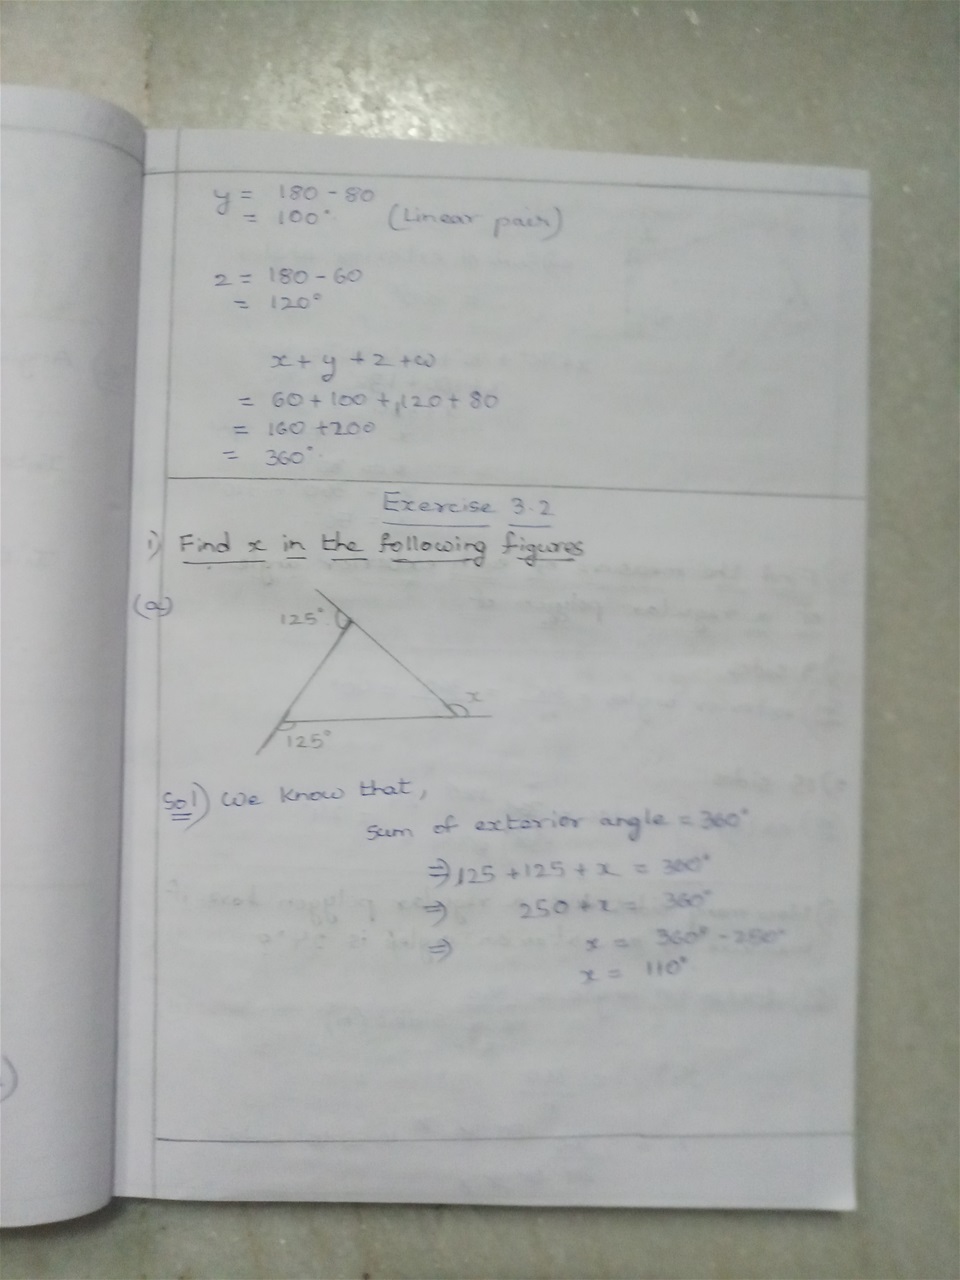 y = 180 - 80
= 100° (Linear pair)
z = 180 - 60
= 120°
x + y + z + w
= 60 + 100 + 120 + 80
= 160 + 200
= 360°
Exercise 3.2
1) Find x in the following figures
(a)
125°
x
125°
Sol) We know that,
sum of exterior angle = 360°
⇒ 125 + 125 + x = 360°
⇒ 250 + x = 360°
⇒ x = 360° - 250°
x = 110°